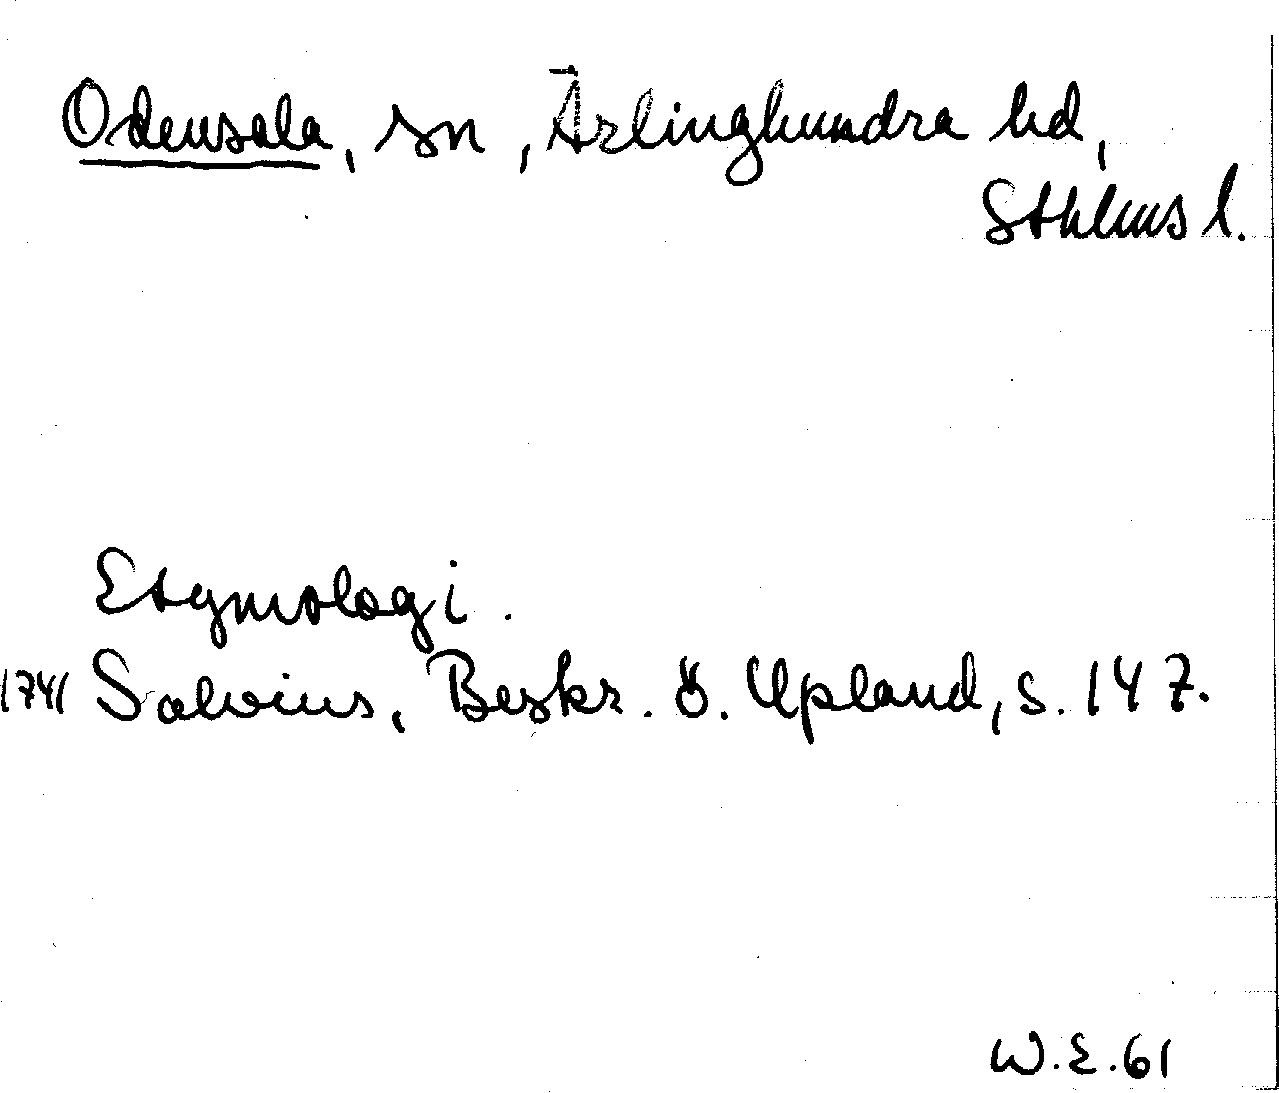 Odensala, sn, Ärlinghundra hd,
Sthlms l.
Etymologi.
1741 Salvius, Beskr. ö. Upland, s. 147.
W.E.61